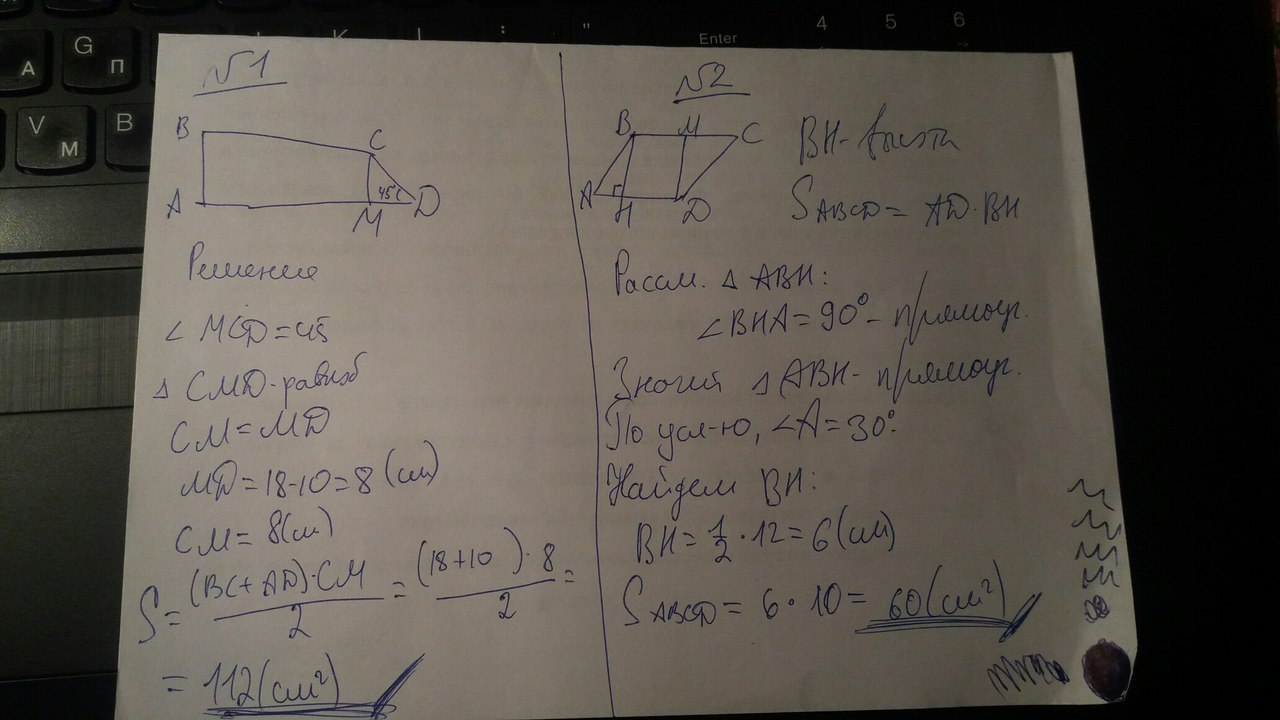 4 5 6
G П
А
Enter
V М
B
№1
B
C
A
45°
M D
Решение
∠ MCD = 45
Δ CMD - равноб
CM = MD
MD = 18-10 = 8 (см)
CM = 8(см)
S = (BC + AD)·CM / 2 = (18+10)·8 / 2 =
= 112(см²)
№2
B M C
A H D
BH - высота
S ABCD = AD·BH
Рассм. Δ ABH:
∠BHA = 90° - прямоуг.
Значит Δ ABH - прямоуг.
По усл-ю, ∠A = 30°
Найдем BH:
BH = 1/2 · 12 = 6 (см)
S ABCD = 6 · 10 = 60(см²)